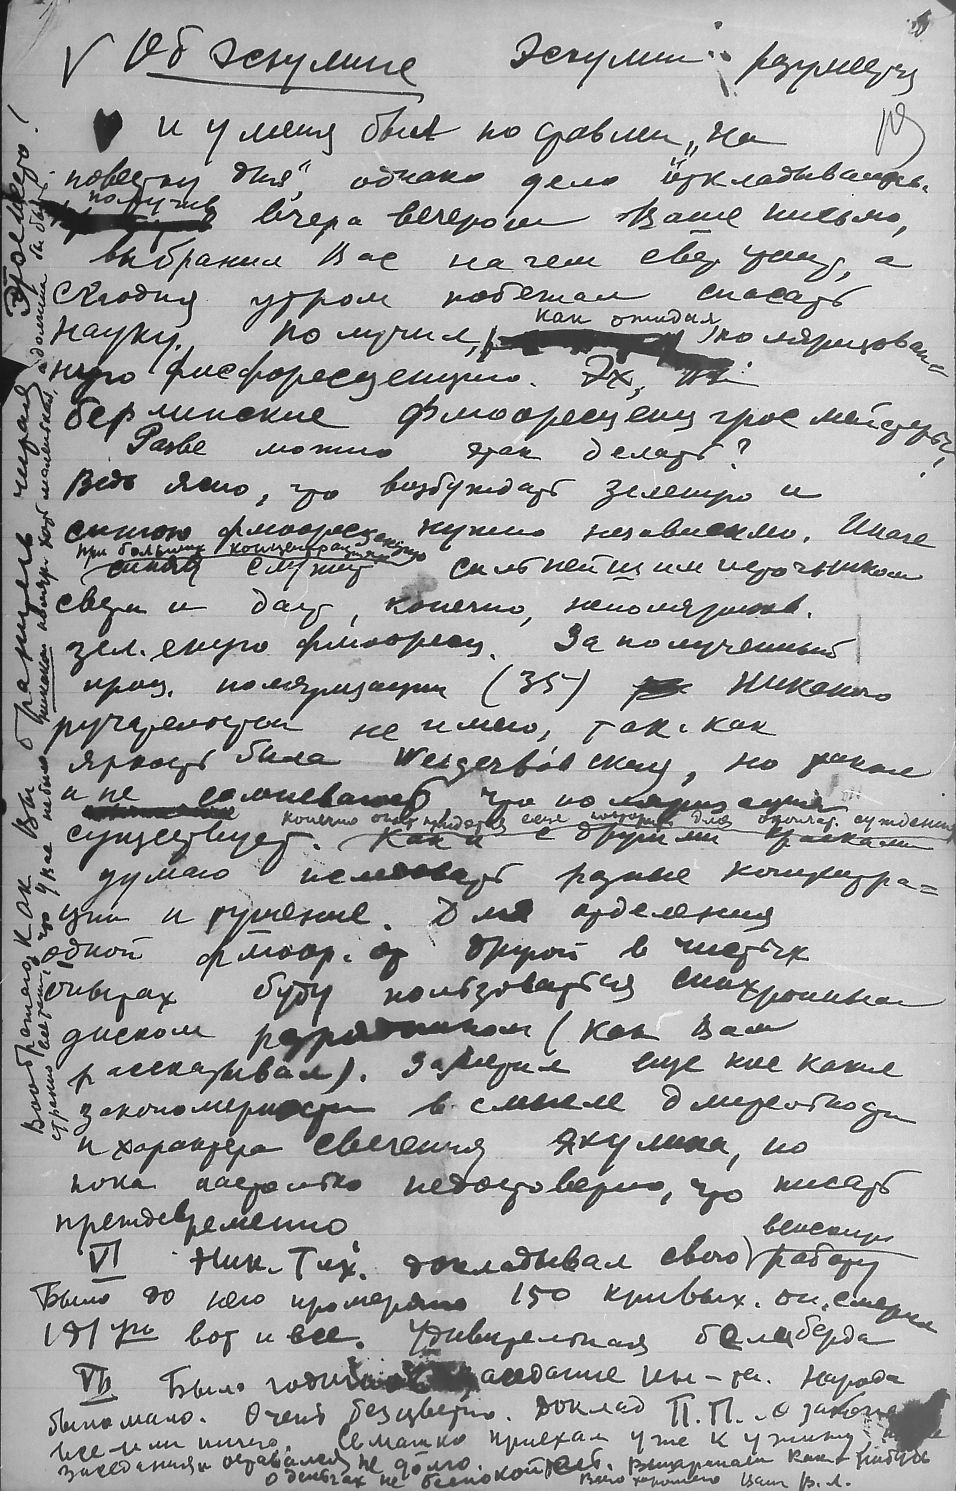 V Об эскулине Эскулин разумеется
и у меня был поставлен „на
повестку дня", однако дело откладывалось.
получив вчера вечером Ваше письмо,
выбранил Вас на чем свет стоит, а
сегодня утром побежал спасать
науку, получил, как ожидал, поляризован=
ную фосфоресценцию. Эх,
берлинские флюоресцент гросмейстеры!
Разве можно так делать?
Ведь ясно, что возбуждать зеленую и
синюю флюоресценцию нужно независимо. Иначе
при больших концентрациях
синяя служит сильнейшим источником
света и дает, конечно, неполяризов.
зеленую флюоресц. За полученный
проц. поляризации (35) никакого
ручательства не имею, так как
яркость была Weigert'овская, но
и не сомневаюсь, что поляризация
существует. конечно опыт придется еще повторить для окончат. суждения
Как и с другими красками
думаю исследовать разные концентра=
ции и тушение. Для отделения
одной флюор. от другой в чистых
опытах буду пользоваться синхронным
диском (как Вам
рассказывал). Заметил еще кое какие
закономерности в смысле длительности
и характера свечения эскулина, но
пока настолько недостоверно, что писать
преждевременно
VI Ник. Тих. докладывал свою венскую работу
Было до него промерено 150 кривых. он смерил
151ую вот и все. Удивительная белиберда
VII Было годичное заседание ин-та. Народа
было мало. Очень бесцветно. Доклад П.П. о
Семашко приехал уже к ужину
заседания и оставался не долго.
О деньгах не беспокойтесь. как нибудь
Всего хорошего Ваш В.Л.
Воображаю, как Вы бранитесь читая это место!
странно